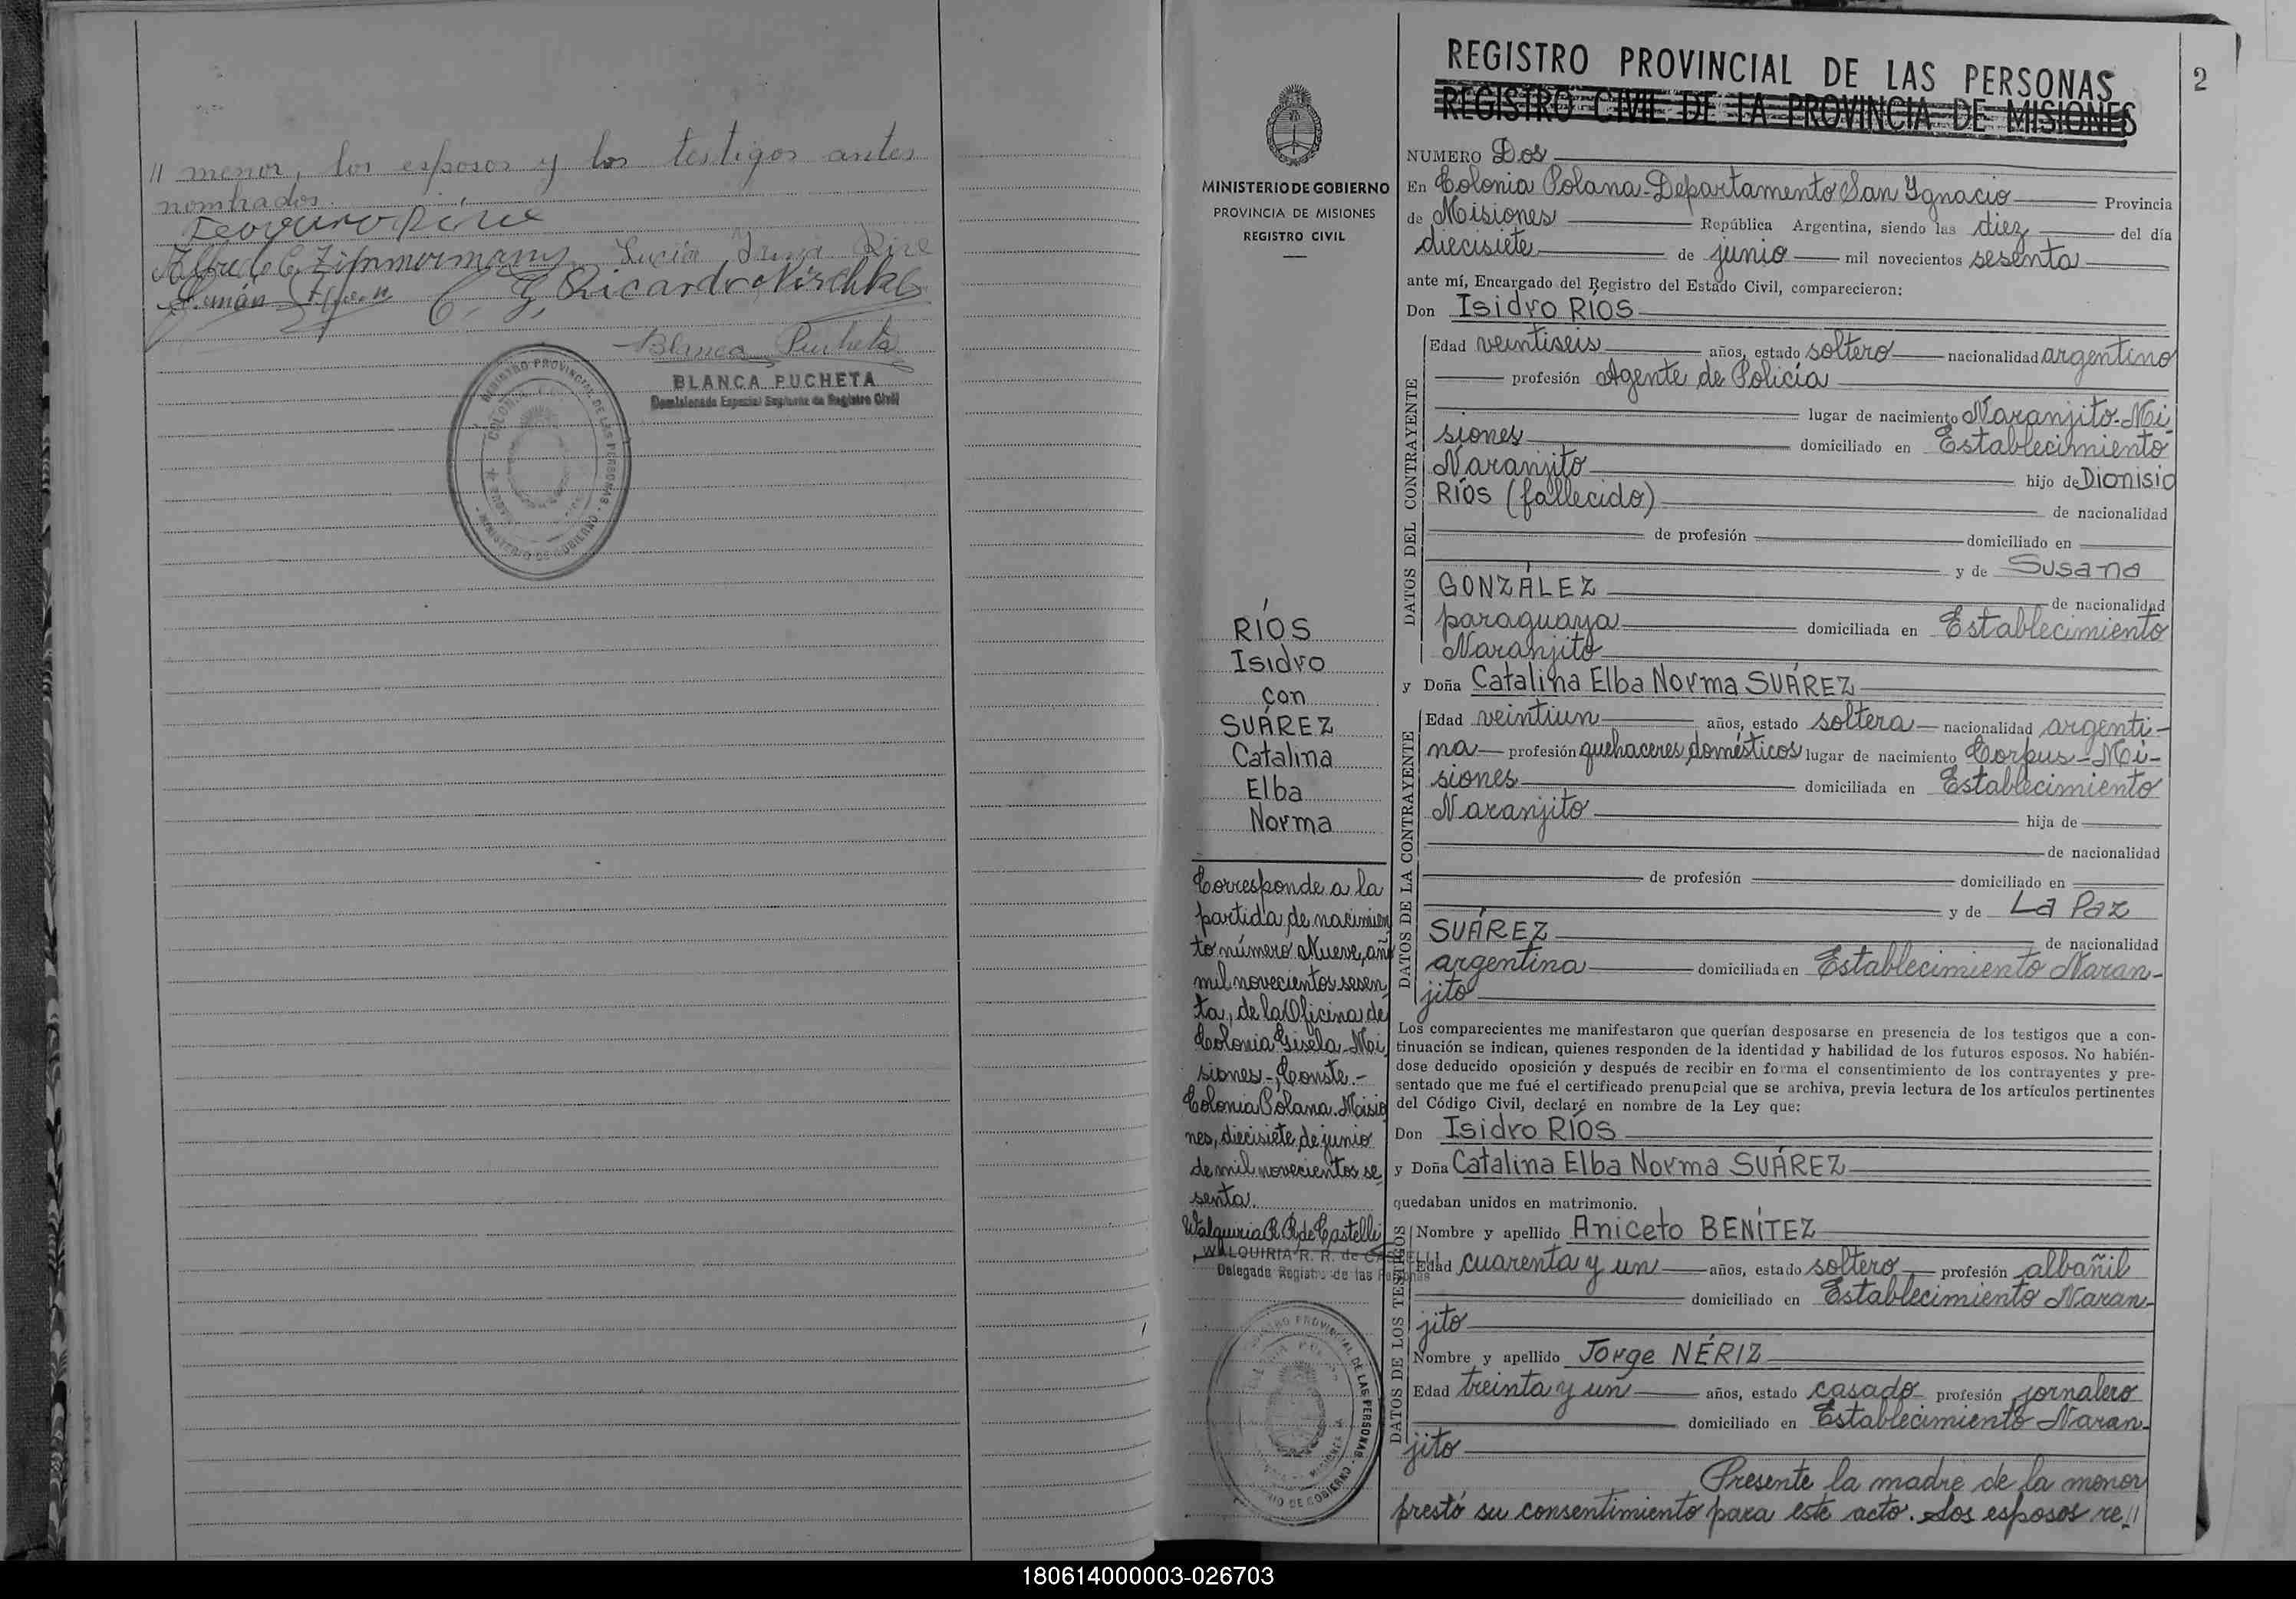 // menor, los esposos y los testigos antes
nombrados.
Alfredo C. Zimmermann Lucía Irma
C. G. Ricardo
Blanca Pucheta
BLANCA PUCHETA
Comisionada Especial Suplente de Registro Civil
REGISTRO PROVINCIAL DE LAS PERSONAS
MINISTERIO DE GOBIERNO
MINISTERIO DE GOBIERNO
PROVINCIA DE MISIONES
REGISTRO CIVIL
RÍOS
Isidro
con
SUÁREZ
Catalina
Elba
Norma
Corresponde a la
partida de nacimien
to número Nueve, año
mil novecientos sesen
ta, de la Oficina de
Colonia Gisela-Mi
siones-, Conste.-
Colonia Polana. Misio
nes, diecisiete de junio
de mil novecientos se
senta.
Walquiria R. R. de Castelli
WALQUIRIA R. R. de CASTELLI
Delegada Registro de las Personas
REGISTRO PROVINCIAL DE LAS PERSONAS
MINISTERIO DE GOBIERNO
REGISTRO PROVINCIAL DE LAS PERSONAS
2
REGISTRO CIVIL DE LA PROVINCIA DE MISIONES
NUMERO Dos
En Colonia Polana-Departamento San Ignacio Provincia
de Misiones República Argentina, siendo las diez del día
diecisiete de junio mil novecientos sesenta
ante mí, Encargado del Registro del Estado Civil, comparecieron:
Don Isidro RÍOS
DATOS DEL CONTRAYENTE
Edad veintiseis años, estado soltero nacionalidad argentino
profesión Agente de Policía
lugar de nacimiento Naranjito-Mi
siones domiciliado en Establecimiento
Naranjito hijo de Dionisio
RÍOS (fallecido) de nacionalidad
de profesión domiciliado en
y de Susana
GONZÁLEZ de nacionalidad
paraguaya domiciliada en Establecimiento
Naranjito
y Doña Catalina Elba Norma SUÁREZ
DATOS DE LA CONTRAYENTE
Edad veintiun años, estado soltera nacionalidad argenti-
na profesión quehaceres domésticos lugar de nacimiento Corpus-Mi-
siones domiciliada en Establecimiento
Naranjito hija de
de nacionalidad
de profesión domiciliado en
y de La Paz
SUÁREZ de nacionalidad
argentina domiciliada en Establecimiento Naran-
jito
Los comparecientes me manifestaron que querían desposarse en presencia de los testigos que a con-
tinuación se indican, quienes responden de la identidad y habilidad de los futuros esposos. No habién-
dose deducido oposición y después de recibir en forma el consentimiento de los contrayentes y pre-
sentado que me fué el certificado prenupcial que se archiva, previa lectura de los artículos pertinentes
del Código Civil, declaré en nombre de la Ley que:
Don Isidro RÍOS
y Doña Catalina Elba Norma SUÁREZ
quedaban unidos en matrimonio.
DATOS DE LOS TESTIGOS
Nombre y apellido Aniceto BENÍTEZ
Edad cuarenta y un años, estado soltero profesión albañil
domiciliado en Establecimiento Naran-
jito
Nombre y apellido Jorge NÉRIZ
Edad treinta y un años, estado casado profesión jornalero
domiciliado en Establecimiento Naran-
jito
Presente la madre de la menor
prestó su consentimiento para este acto. Los esposos re//
180614000003-026703